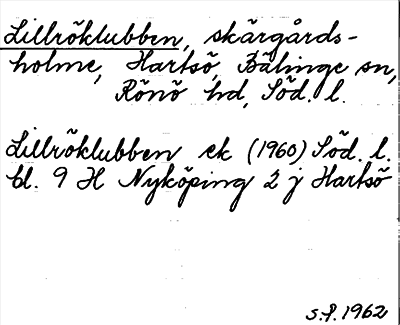 Lillröklubben, skärgårds-
holme, Hartsö, Bälinge sn,
Rönö hd, Söd. l.
Lillröklubben ek (1960) Söd. l.
bl. 9 H Nyköping 2 j Hartsö
s.P. 1962